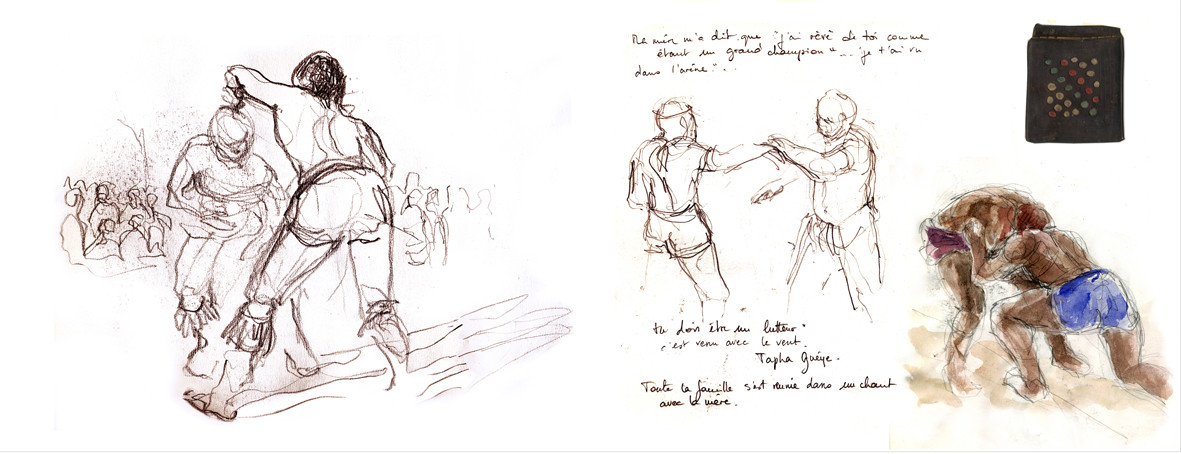 Ma mère m'a dit que "j'ai rêvé de toi comme
étant un grand champion" ... "je t'ai vu
dans l'arène" ...
tu dois être un lutteur"
c'est venu avec le vent.
Tapha Guèye.
Toute la famille s'est réunie dans un chant
avec la mère.